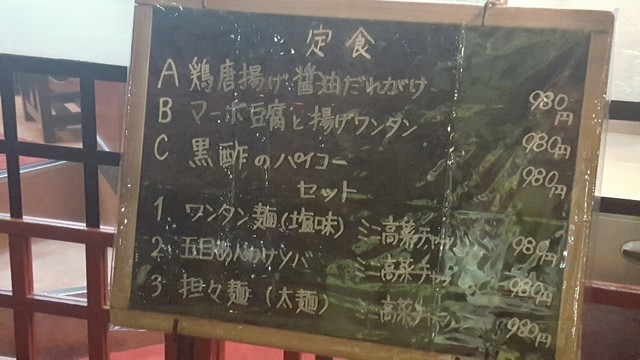 定食
A 鶏唐揚げ醤油だれがけ 980円
B マーボ豆腐と揚げワンタン 980円
C 黒酢のパイコー 980円
セット
1 ワンタン麺(塩味) ミニ高菜チャー 980円
2 五目あんかけソバ ミニ高菜チャー 980円
3 担々麺(太麺) ミニ高菜チャー 980円